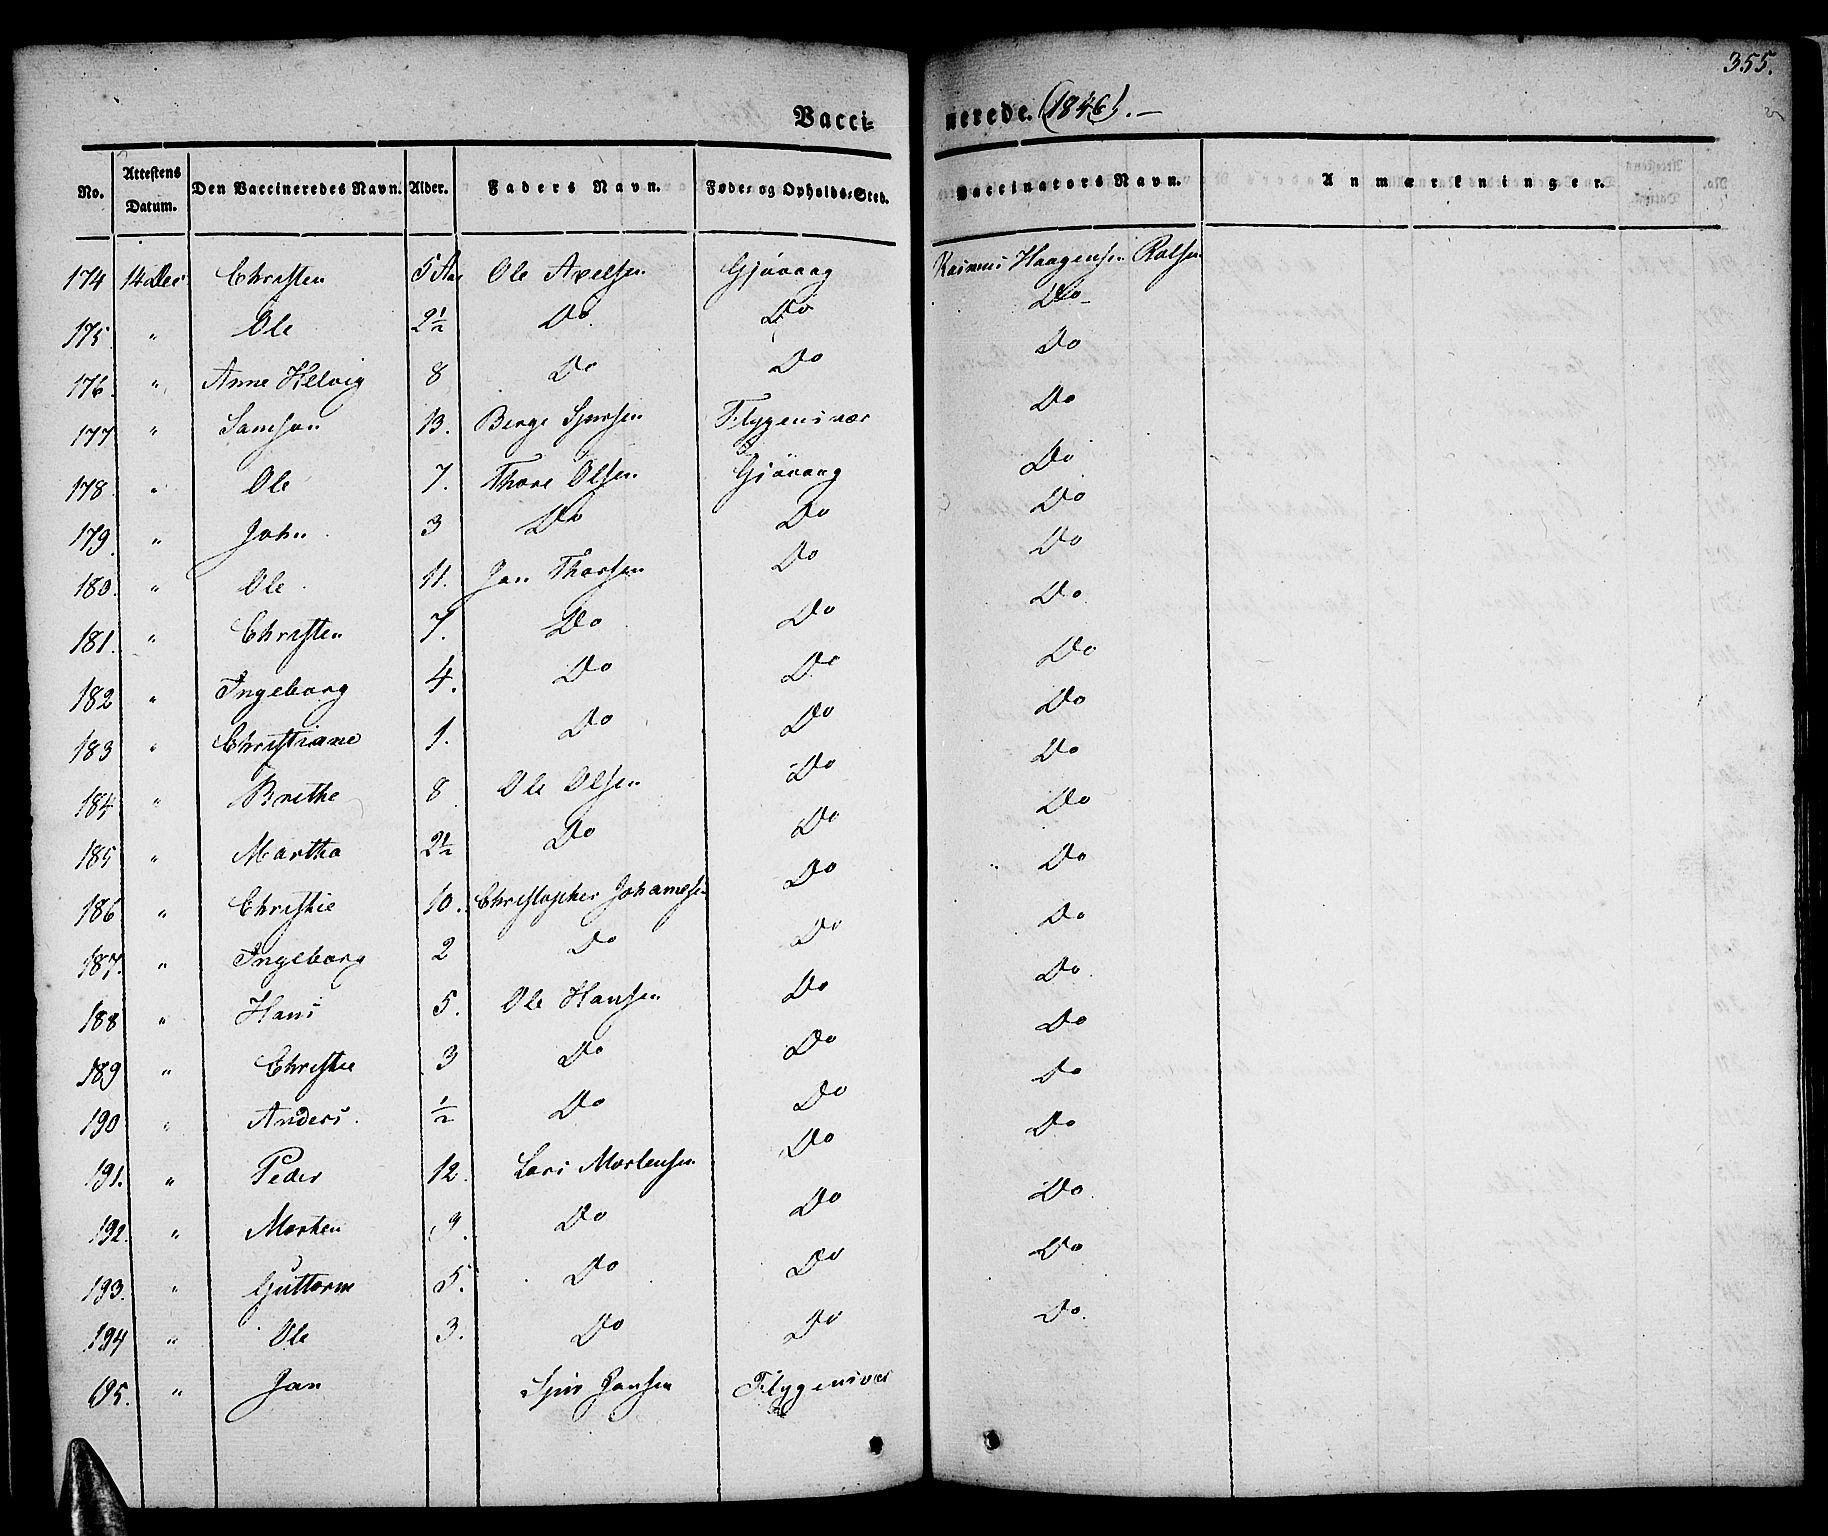 355.
Vacci- nerede. (1846). –
No. Attestens Datum. Den Vaccineredes Navn. Alder. Faders Navn. Føde- og Opholds-Sted. Vaccinators Navn. Anmærkninger.
174 14 Dec Christen 5 Aar Ole Axelsen Gjøvaag Rasmus Haagensen Rolfsen
175. " Ole 2½ Do Do Do
176. " Anne Helvig 8 Do Do Do
177 " Samson 13. Berge Sjursen Flygensvær Do
178. " Ole 7. Thore Olsen Gjøvaag Do
179. " John 3 Do Do Do
180. " Ole 11. Jan Thorsen Do Do
181. " Christen 7. Do Do Do
182 " Ingeborg 4. Do Do Do
183 " Christiane 1. Do Do Do
184 " Brethe 8 Ole Olsen Do Do
185 " Martha 2½ Do Do Do
186 " Christie 10. Christopher Johannesen Do Do
187. " Ingeborg 2 Do Do Do
188 " Hans 5. Ole Hansen Do Do
189 " Christie 3 Do Do Do
190 " Anders. ½ Do Do Do
191. " Peder 12. Lars Mortensen Do Do
192. " Morten 9. Do Do Do
193. " Guttorm 5. Do Do Do
194 " Ole 3. Do Do Do
195. " Jan Sjur Jansen Flygensvær